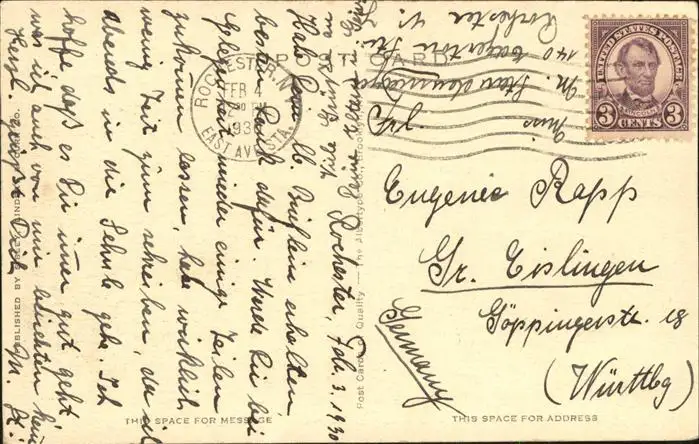 POST CARD
UNITED STATES POSTAGE
LINCOLN
3 CENTS 3
ROCHESTER, N.
FEB 4
2 30 PM
193
EAST AVE. STA.
Frl.
Eugenie Rapp
Gr. Eislingen
Göppingerstr. 18
(Württbg)
Germany
Rochester, Feb. 3. 1930
Hab Dein lb. Brieflein erhalten
besten Dank dafür. Werde Dir bei
Gelegenheit wieder einige Zeilen
zukommen lassen, hab wirklich
wenig Zeit zum schreiben, da ich
abends in die Schule geh. Ich
hoffe daß es Dir immer gut geht
was ich auch von mir berichten kann
Herzl. grüßt Dich
140 Edgerton Str.
Rochester N.
THIS SPACE FOR MESSAGE
THIS SPACE FOR ADDRESS
Post Cards of Quality — The Albertype Co., Brooklyn
PUBLISHED BY